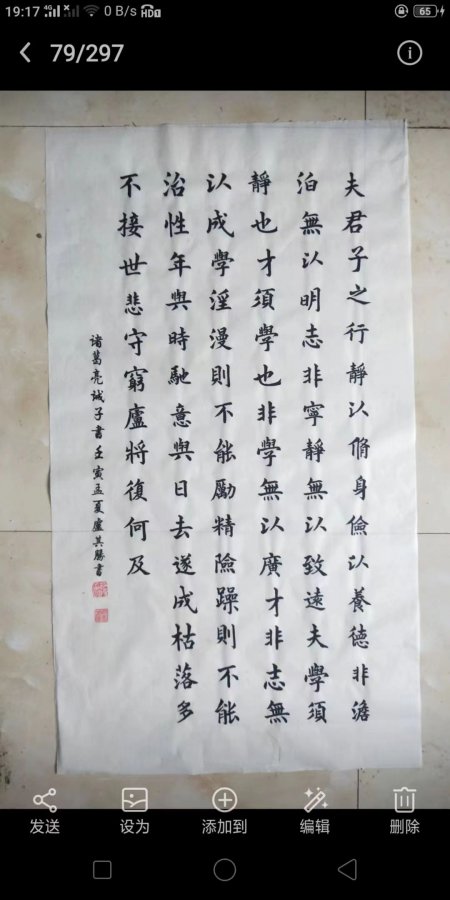 19:17 4G 0 B/s HD1 65
79/297
夫君子之行靜以脩身儉以養德非澹
泊無以明志非寧靜無以致遠夫學須
靜也才須學也非學無以廣才非志無
以成學淫漫則不能勵精險躁則不能
治性年與時馳意與日去遂成枯落多
不接世悲守窮廬將復何及
諸葛亮誡子書壬寅孟夏盧其勝書
发送
设为
添加到
编辑
删除